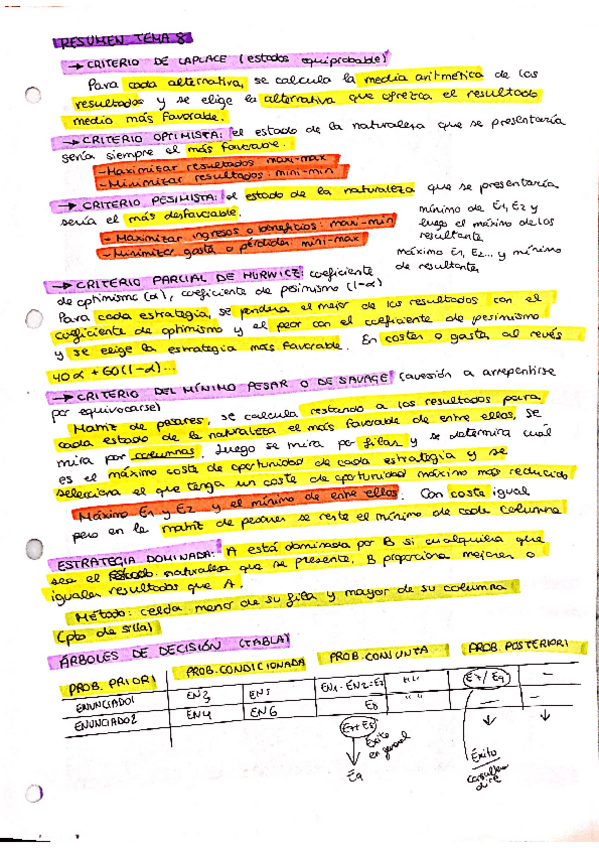 RESUMEN TEMA 8
→ CRITERIO DE LAPLACE (estados equiprobable)
Para cada alternativa, se calcula la media aritmética de los
resultados y se elige la alternativa que ofrezca el resultado
medio más favorable.
→ CRITERIO OPTIMISTA: el estado de la naturaleza que se presentaría
sería siempre el más favorable.
- Maximizar resultados maxi-max
- Minimizar resultados: mini-min
→ CRITERIO PESIMISTA: el estado de la naturaleza que se presentaría
sería el más desfavorable.
- Maximizar ingresos o beneficios: maxi-min
- Minimizar gastos o pérdidas: mini-max
mínimo de E1, E2 y
luego el máximo de los
resultante
máximo E1, E2... y mínimo
de resultante
→ CRITERIO PARCIAL DE HURWICZ: coeficiente
de optimismo (α), coeficiente de pesimismo (1-α)
Para cada estrategia, se pondera el mejor de los resultados con el
coeficiente de optimismo y el peor con el coeficiente de pesimismo
y se elige la estrategia más favorable. En costes o gastos al revés
40α + 60(1-α)...
→ CRITERIO DEL MÍNIMO PESAR O DE SAVAGE (aversión a arrepentirse
por equivocarse)
Matriz de pesares, se calcula restando a los resultados para
cada estado de la naturaleza el más favorable de entre ellos, se
mira por columnas. Luego se mira por filas y se determina cuál
es el máximo coste de oportunidad de cada estrategia y se
selecciona el que tenga un coste de oportunidad máximo más reducido
Máximo E1 y E2 y el mínimo de entre ellos. Con coste igual
pero en la matriz de pesares se resta el mínimo de cada columna
ESTRATEGIA DOMINADA: A está dominada por B si cualquiera que
sea el naturaleza que se presente, B proporciona mejores o
iguales resultados que A.
Método: celda menor de su fila y mayor de su columna
(pto de silla)
ÁRBOLES DE DECISIÓN (TABLA)
PROB. PRIORI PROB. CONDICIONADA PROB. CONJUNTA PROB. POSTERIORI
ENUNCIADO1 EN3 EN5 EN1 · EN2 = E7 " " E7/E9 —
ENUNCIADO2 EN4 EN6 E8 " " — —
E7+E8
Éxito
en general
E9
Éxito